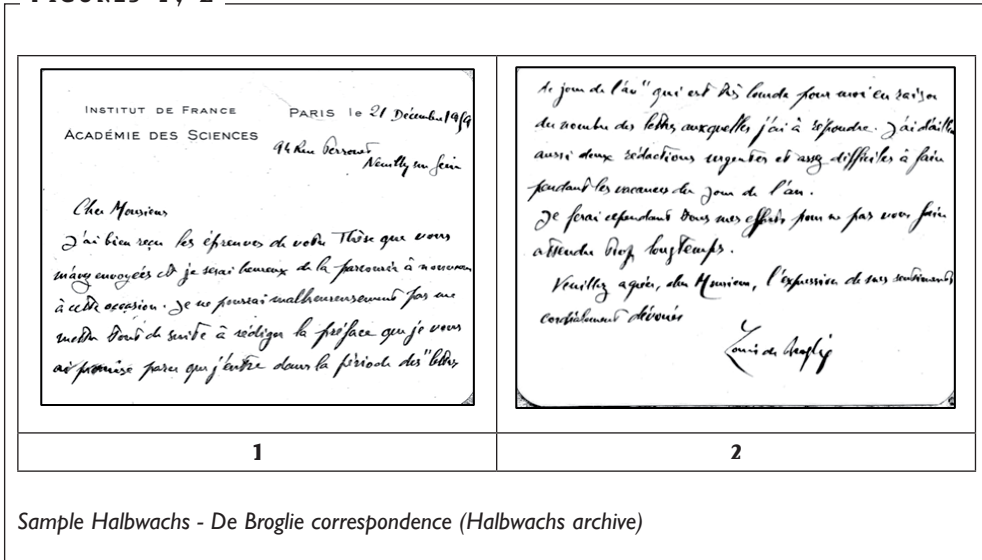 FIGURES 1, 2
INSTITUT DE FRANCE
ACADÉMIE DES SCIENCES
PARIS le 21 Décembre 1959
94 Rue Perronet
Neuilly sur Seine
Cher Monsieur
J'ai bien reçu les épreuves de votre Thèse que vous
m'avez envoyées et je serai heureux de la parcourir à nouveau
à cette occasion. Je ne pourrai malheureusement pas me
mettre tout de suite à rédiger la préface que je vous
ai promise parce que j'entre dans la période des "lettres
de jour de l'an" qui est très lourde pour moi en raison
du nombre des lettres auxquelles j'ai à répondre. J'ai d'ailleurs
aussi deux rédactions urgentes et assez difficiles à faire
pendant les vacances du jour de l'an.
Je ferai cependant tous mes efforts pour ne pas vous faire
attendre trop longtemps.
Veuillez agréer, cher Monsieur, l'expression de mes sentiments
cordialement dévoués
Louis de Broglie
1
2
Sample Halbwachs - De Broglie correspondence (Halbwachs archive)